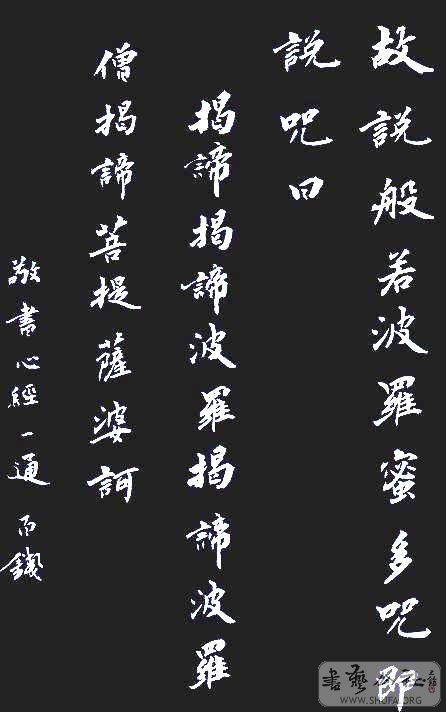 故說般若波羅蜜多咒即
說咒曰
揭諦揭諦波羅揭諦波羅
僧揭諦菩提薩婆訶
敬書心經一通 百鐵
WWW.SHUFA.ORG